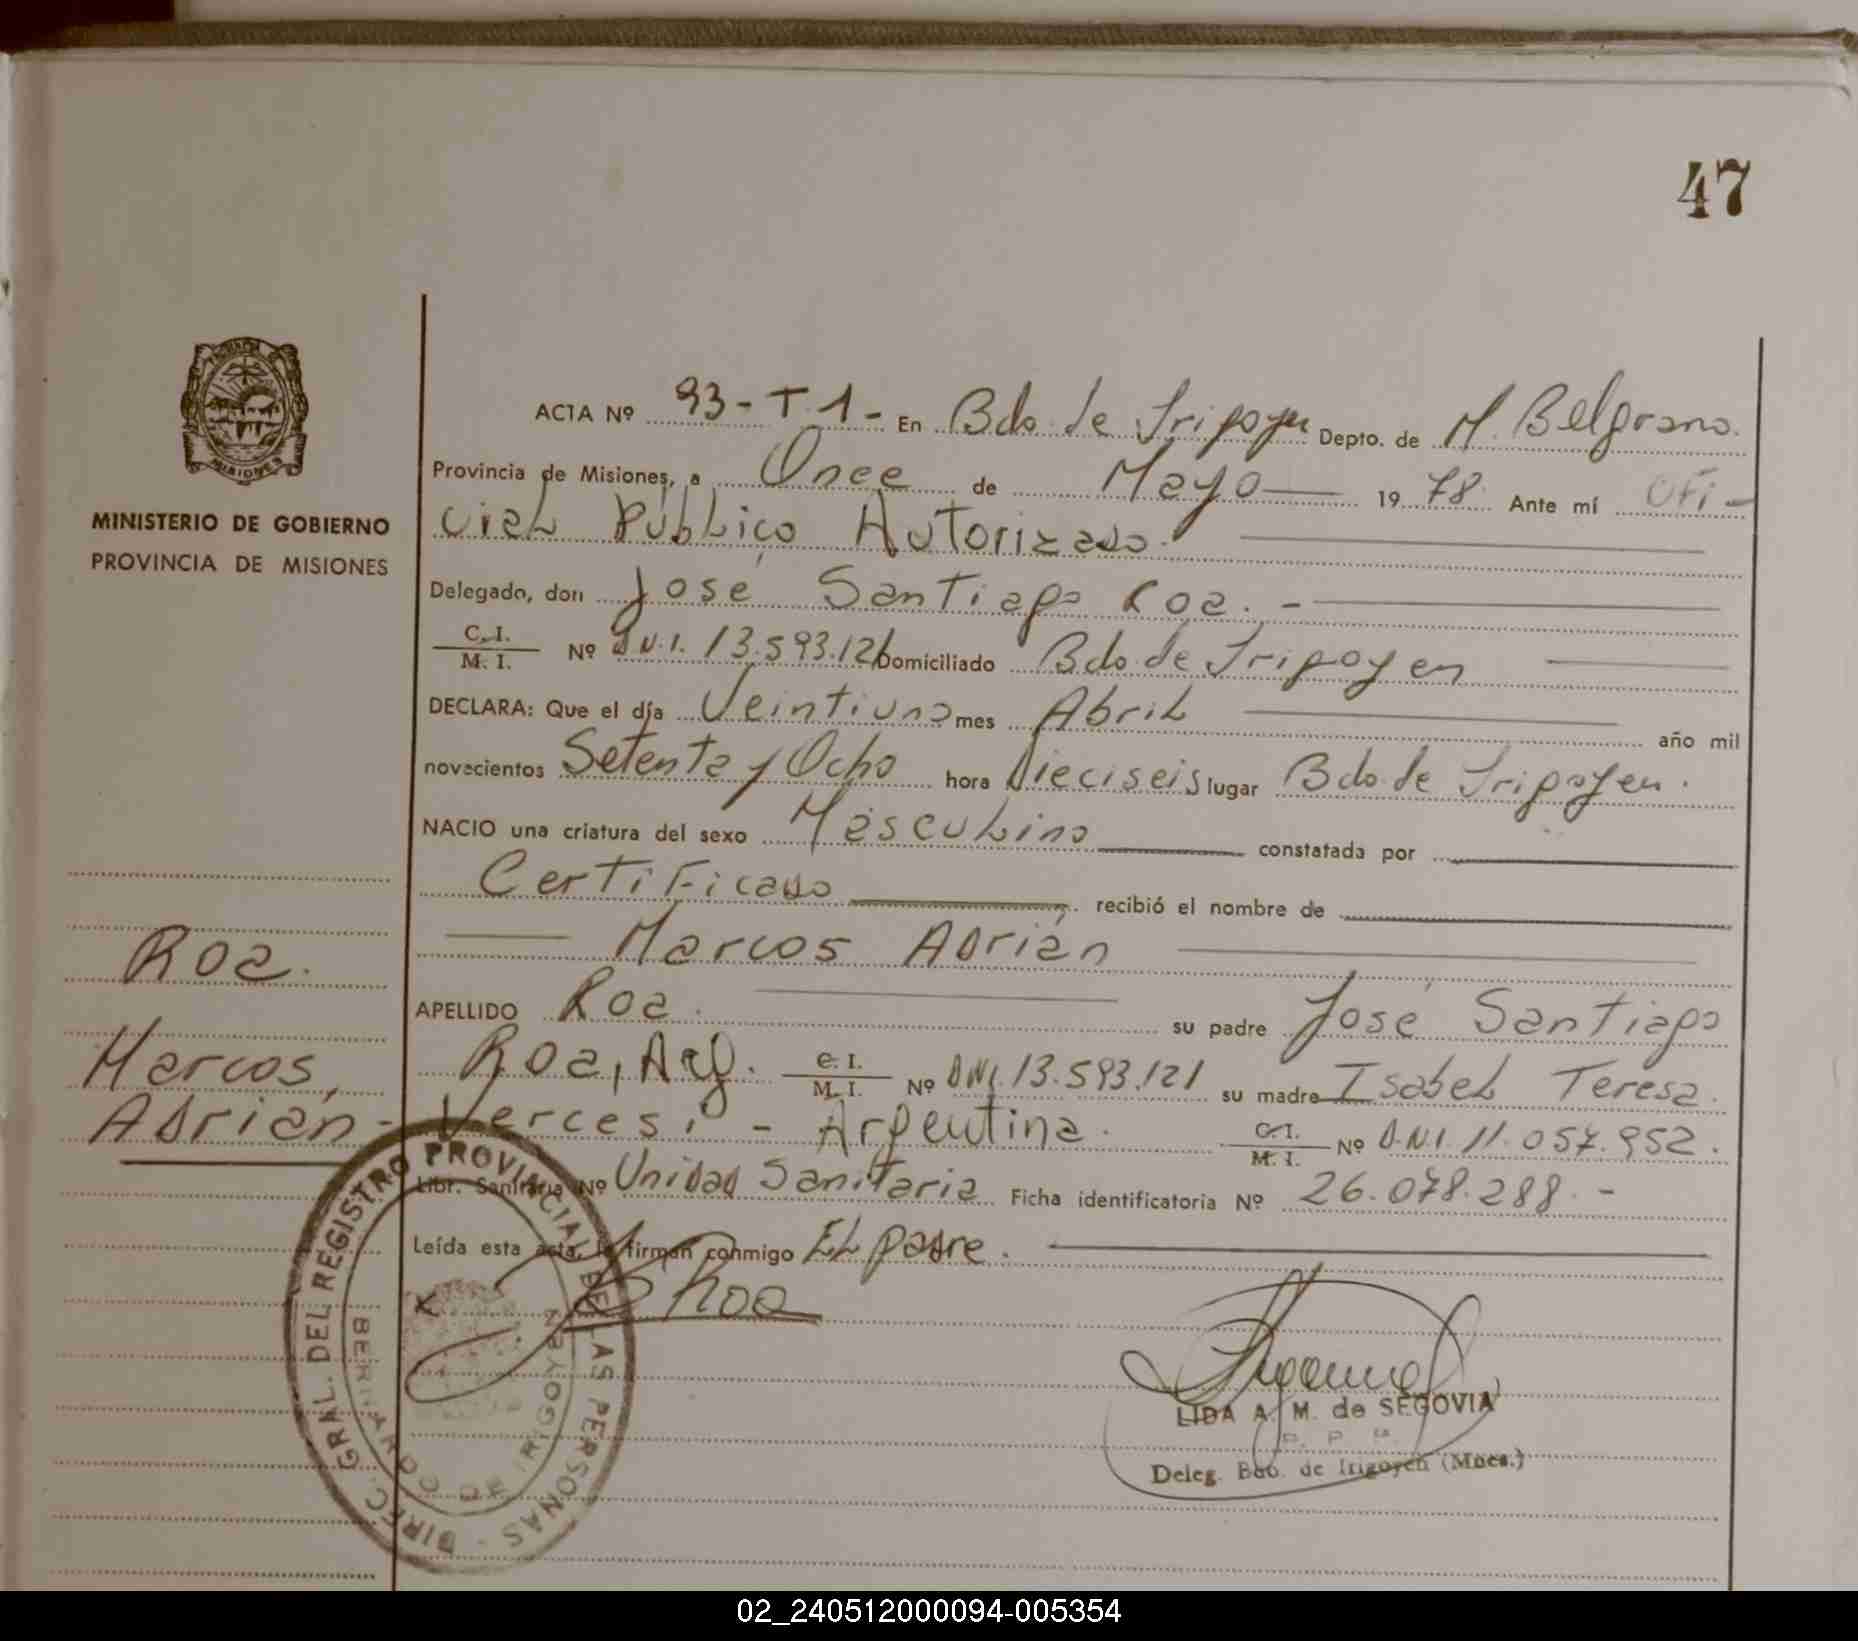 47
PROVINCIA DE
MISIONES
MINISTERIO DE GOBIERNO
PROVINCIA DE MISIONES
Roa.
Marcos,
Adrián -
ACTA Nº 93-T.1- En Bdo. de Irigoyen Depto. de M. Belgrano.
Provincia de Misiones, a Once de Mayo 1978. Ante mí Ofi-
cial Público Autorizado.
Delegado, don José Santiago Roa. -
C. I. / M. I. Nº D.N.I. 13.593.121 Domiciliado Bdo. de Irigoyen
DECLARA: Que el día Veintiuno mes Abril año mil
novecientos Setenta y Ocho hora Dieciseis lugar Bdo. de Irigoyen.
NACIO una criatura del sexo Másculino constatada por
Certificado recibió el nombre de
Marcos Adrián
APELLIDO Roa. su padre José Santiago
Roa, Arg. C. I. / M. I. Nº DNI. 13.593.121 su madre Isabel Teresa.
Vercesi - Argentina. C. I. / M. I. Nº D.N.I. 11.057.952.
Libr. Sanitaria Nº Unidad Sanitaria Ficha identificatoria Nº 26.078.288. -
Leída esta acta, la firman conmigo El padre.
x Roa
LIDA A. M. de SEGOVIA
Deleg. Bdo. de Irigoyen (Mnes.)
DIREC. GRAL. DEL REGISTRO PROVINCIAL DE LAS PERSONAS -
BERNARDO DE IRIGOYEN
02_240512000094-005354